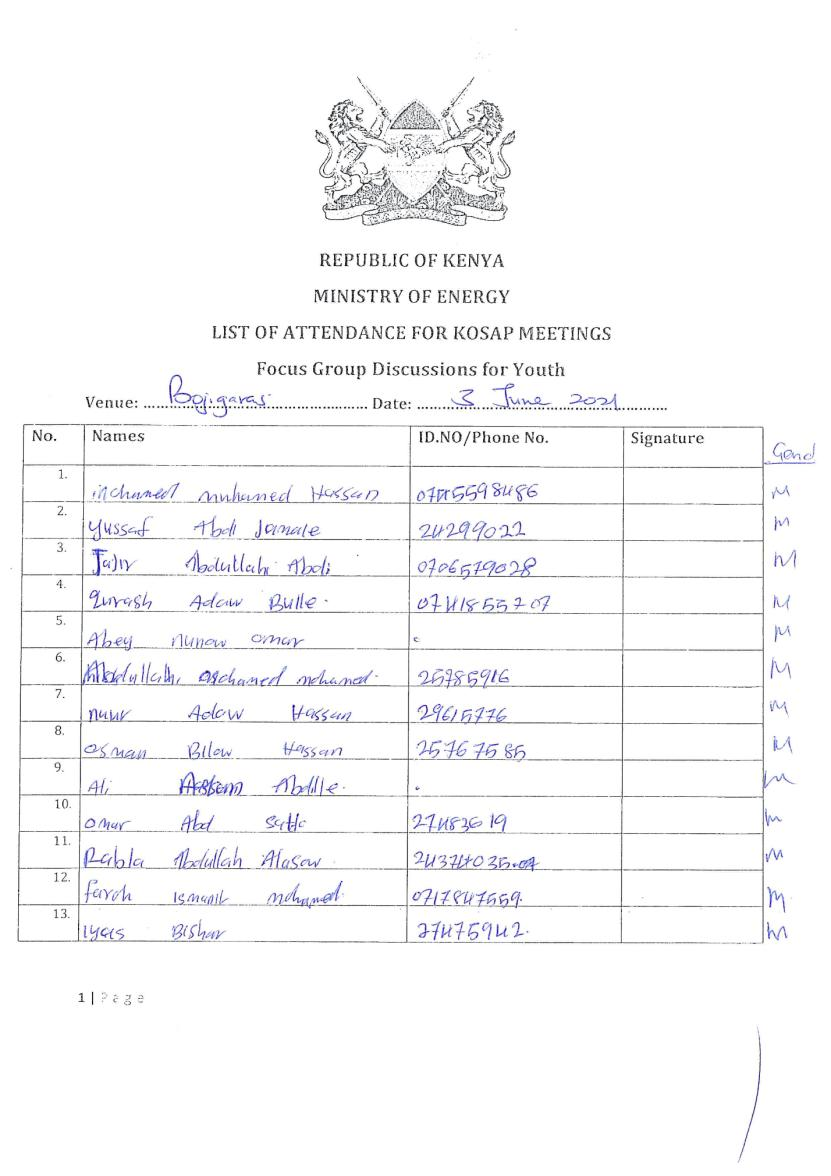 REPUBLIC OF KENYA
MINISTRY OF ENERGY
LIST OF ATTENDANCE FOR KOSAP MEETINGS
Focus Group Discussions for Youth
Venue: Bojigaras Date: 3 June 2021
No. Names ID.NO/Phone No. Signature Gend
1. muhamed Hassan M
2. Yussaf Abdi Jamale 24299022 M
3. Abdullahi Abdi 0706579028 M
4. Qurash Adaw Bulle. 0741855707 M
5. Abey nunow omar M
6. mohamed. 25785916 M
7. nuur Adow Hassan 29615776 M
8. osman Bilow Hassan 25767585 M
9. Ali Abdille. M
10. omar Abd 27483619 M
11. Rabla Abdullah Alasow M
12. farah Ismail mohamed. 0717847559. M
13. Iyas Bishar 27475942. M
1 | Page